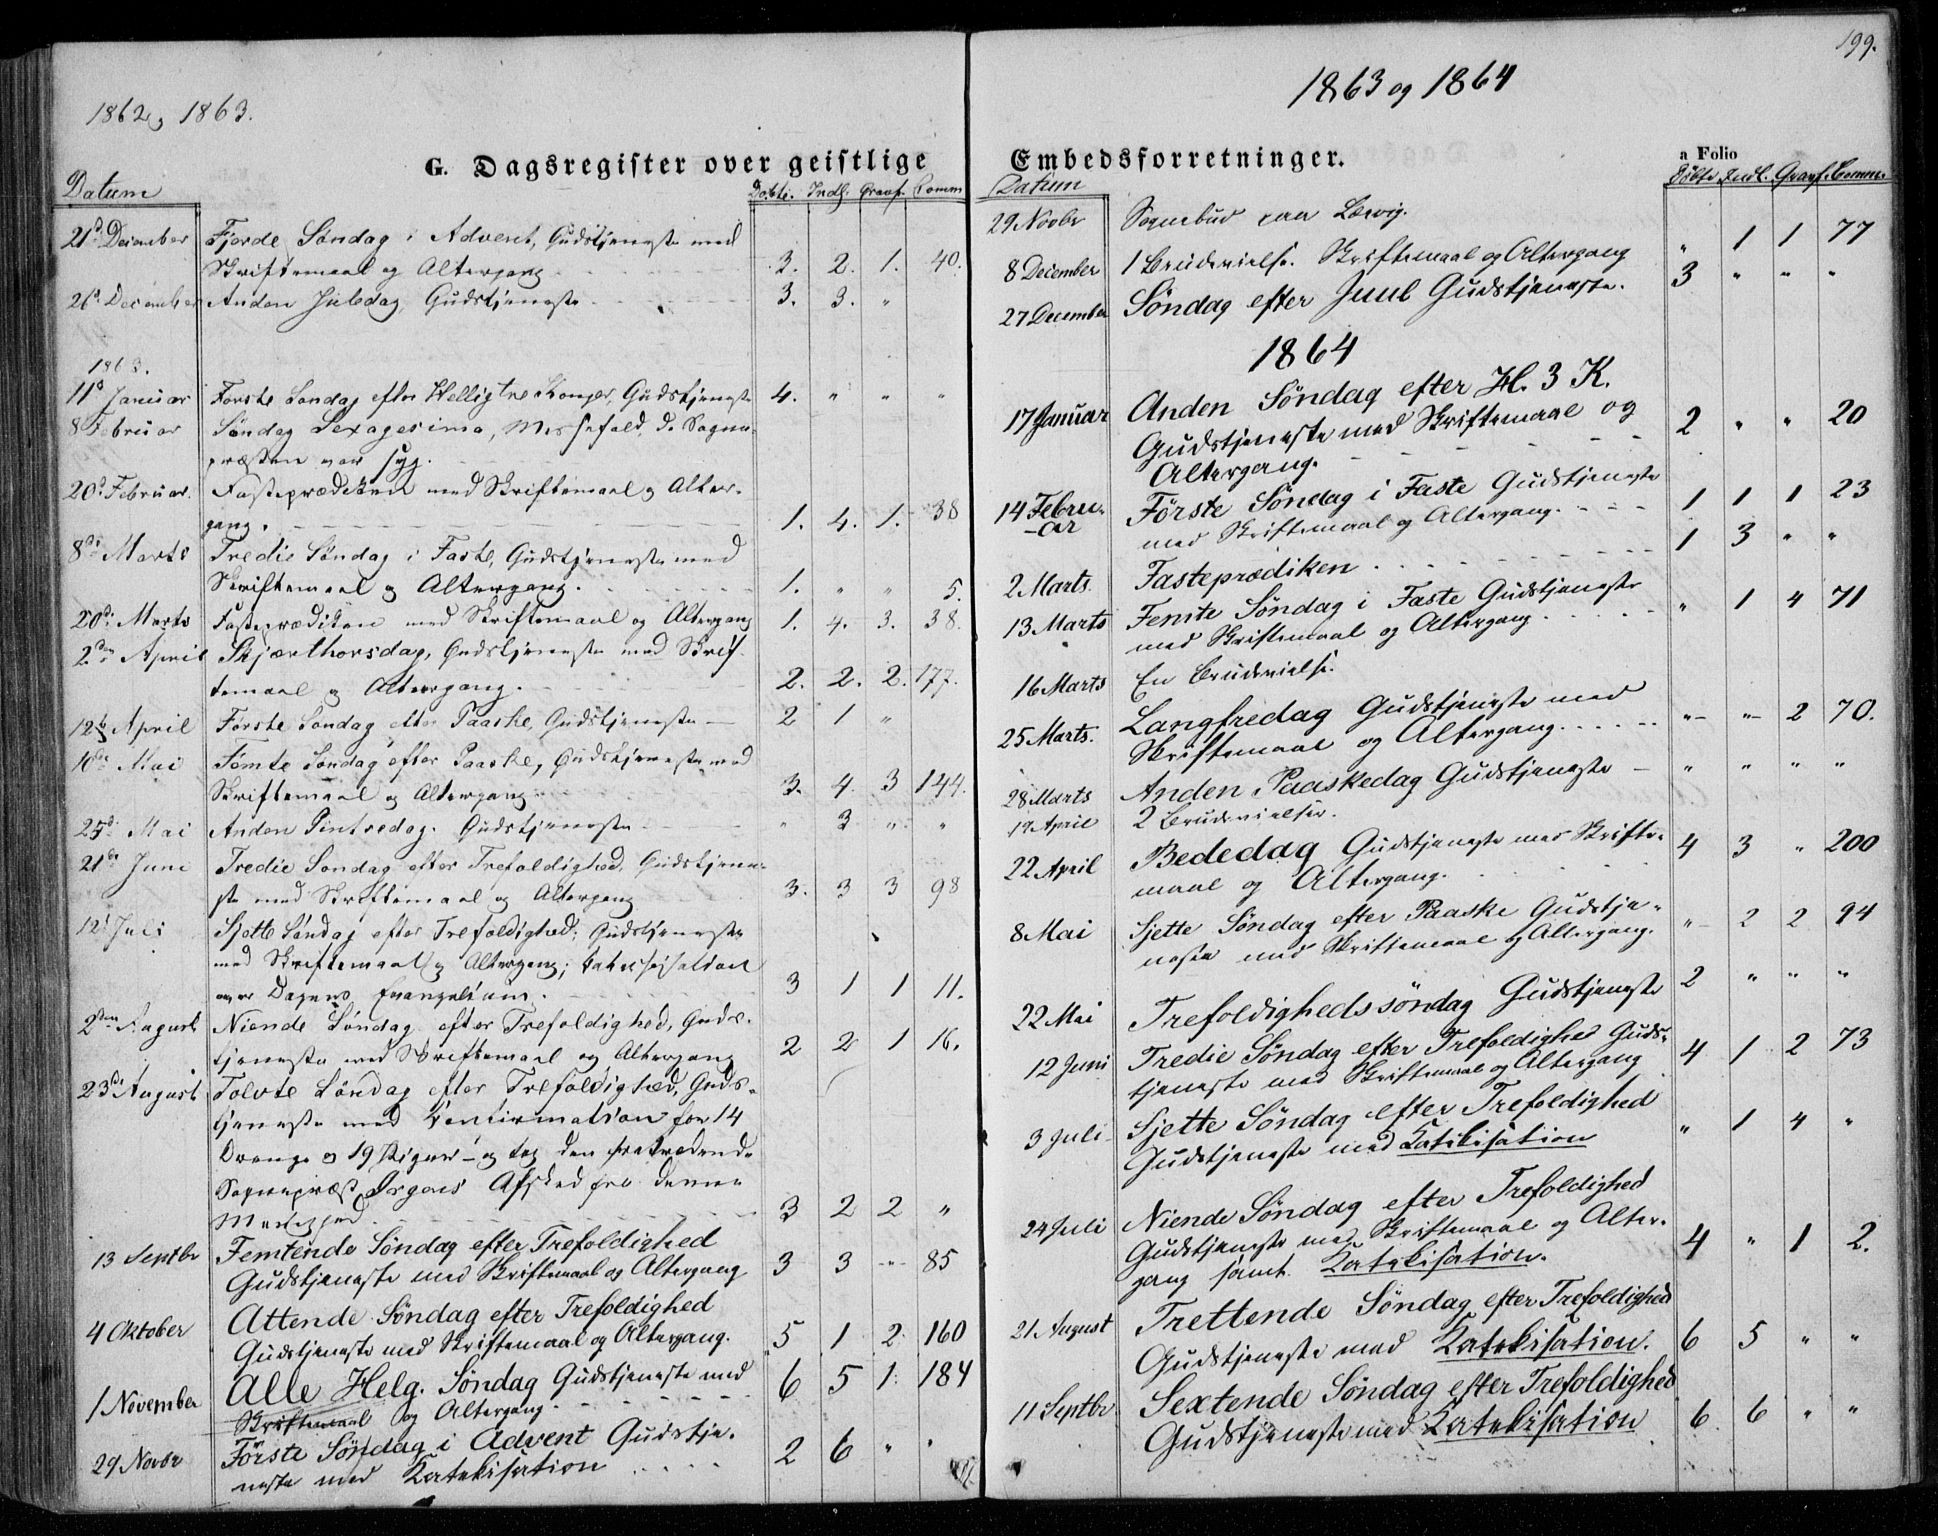 1862 og 1863.
G. Dagsregister over geistlige
Datum Døbte. Indl. Graaf. Comm
21d December Fjerde Søndag i Advent, Gudstjeneste med
Skriftemaal og Altergang 3. 2. 1. 40.
26d December Anden Juledag, Gudstjeneste 3. 3. "
1863.
11d Januar Første Søndag efter Hellig tre Konger, Gudstjeneste 4. " " "
8 Februar Søndag Sexagesima, Messefald, da Sogne-
præsten var syg.
20d Februar. Fasteprædiken med Skriftemaal og Alter-
gang. 1. 4. 1. 38
8de Marts Tredie Søndag i Faste, Gudstjeneste med
Skriftemaal og Altergang. 1. " " 5.
20de Marts Fasteprædiken med Skriftemaal og Altergang 1. 4. 3. 38.
2den April Skjærthorsdag, Gudstjeneste med Skrif-
temaal og Altergang. 2. 2. 2. 177.
12te April Første Søndag efter Paaske, Gudstjeneste 2 1 "
10de Mai Femte Søndag efter Paaske, Gudstjeneste med
Skriftemaal og Altergang 3. 4. 3 144.
25de Mai Anden Pintsedag. Gudstjeneste " 3 " "
21de Juni Tredie Søndag efter Trefoldighed, Gudstjene-
ste med Skriftemaal og Altergang 3. 3 3 98
12t Juli Sjette Søndag efter Trefoldighed; Gudstjeneste
med Skriftemaal og Altergang;
over Dagens Evangelium. 3 1 1 11.
2den August Niende Søndag efter Trefoldighed, Guds-
tjeneste med Skriftemaal og Altergang 2 2 1 16.
23de August Tolvte Søndag efter Trefoldighed, Guds-
tjeneste med Konfirmation for 14
Drenge og 19 Piger – og tog den fratrædende
Sognepræst Ørgens Afsked fra denne
Menighed. 3 2 2 "
13 Septbr Femtende Søndag efter Trefoldighed
Gudstjeneste med Skriftemaal og Altergang 3 3 " 85
4 Oktober Attende Søndag efter Trefoldighed
Gudstjeneste med Skriftemaal og Altergang. 5 1 2. 160
1 November Alle Helg. Søndag Gudstjeneste med
Skriftemaal og Altergang. 6 5 1. 184
29 Novbr Förste Søndag i Advent Gudstje-
neste med Katekisation 2 6 " "
199.
1863 og 1864
Embedsforretninger. a Folio
Datum Döbte Indl. Graaf. Comm.
29 Novbr Sognebud paa Lærvig.
8 December 1 Brudevielse. Skriftemaal og Altergang " 1 1 77
27 December Söndag efter Juul Gudstjeneste. 3 " " "
1864
17 Januar Anden Söndag efter H. 3 K.
Gudstjeneste med Skriftemaal og 2 " " 20
Altergang.
14 Febru- Förste Söndag i Faste Gudstjeneste
-ar med Skriftemaal og Altergang. 1 1 1 23
2 Marts Fasteprædiken 1 3 " "
13 Marts Femte Söndag i Faste Gudstjeneste
med Skriftemaal og Altergang " 1 4 71
16 Marts En Brudevielse.
25 Marts. Langfredag Gudstjeneste med
Skriftemaal og Altergang. " " 2 70.
28 Marts Anden Paaskedag Gudstjeneste " " " "
19 April 2 Brudevielser.
22 April Bededag Gudstjeneste med Skrifte-
maal og Altergang. 4 3 " 200
8 Mai Sjette Söndag efter Paaske Gudstje-
neste med Skriftemaal og Altergang. " 2 2 94
22 Mai Trefoldighedssöndag Gudstjeneste 2 " " "
12 Juni Tredie Söndag efter Trefoldighe Guds-
tjeneste med Skriftemaal og Altergang 4 1 2 73
3 Juli Sjette Söndag efter Trefoldighed
Gudstjeneste med Katekisation " 1 4 "
24 Juli Niende Söndag efter Trefoldighed
Gudstjeneste med Skriftemaal og Alter-
gang samt Katekisation. 4 " 1 2.
21 August Trettende Söndag efter Trefoldighed
Gudstjeneste med Katekisation. 6 5 " "
11 Septbr Sextende Söndag efter Trefoldighed
Gudstjeneste med Katekisation 6. 6 " "